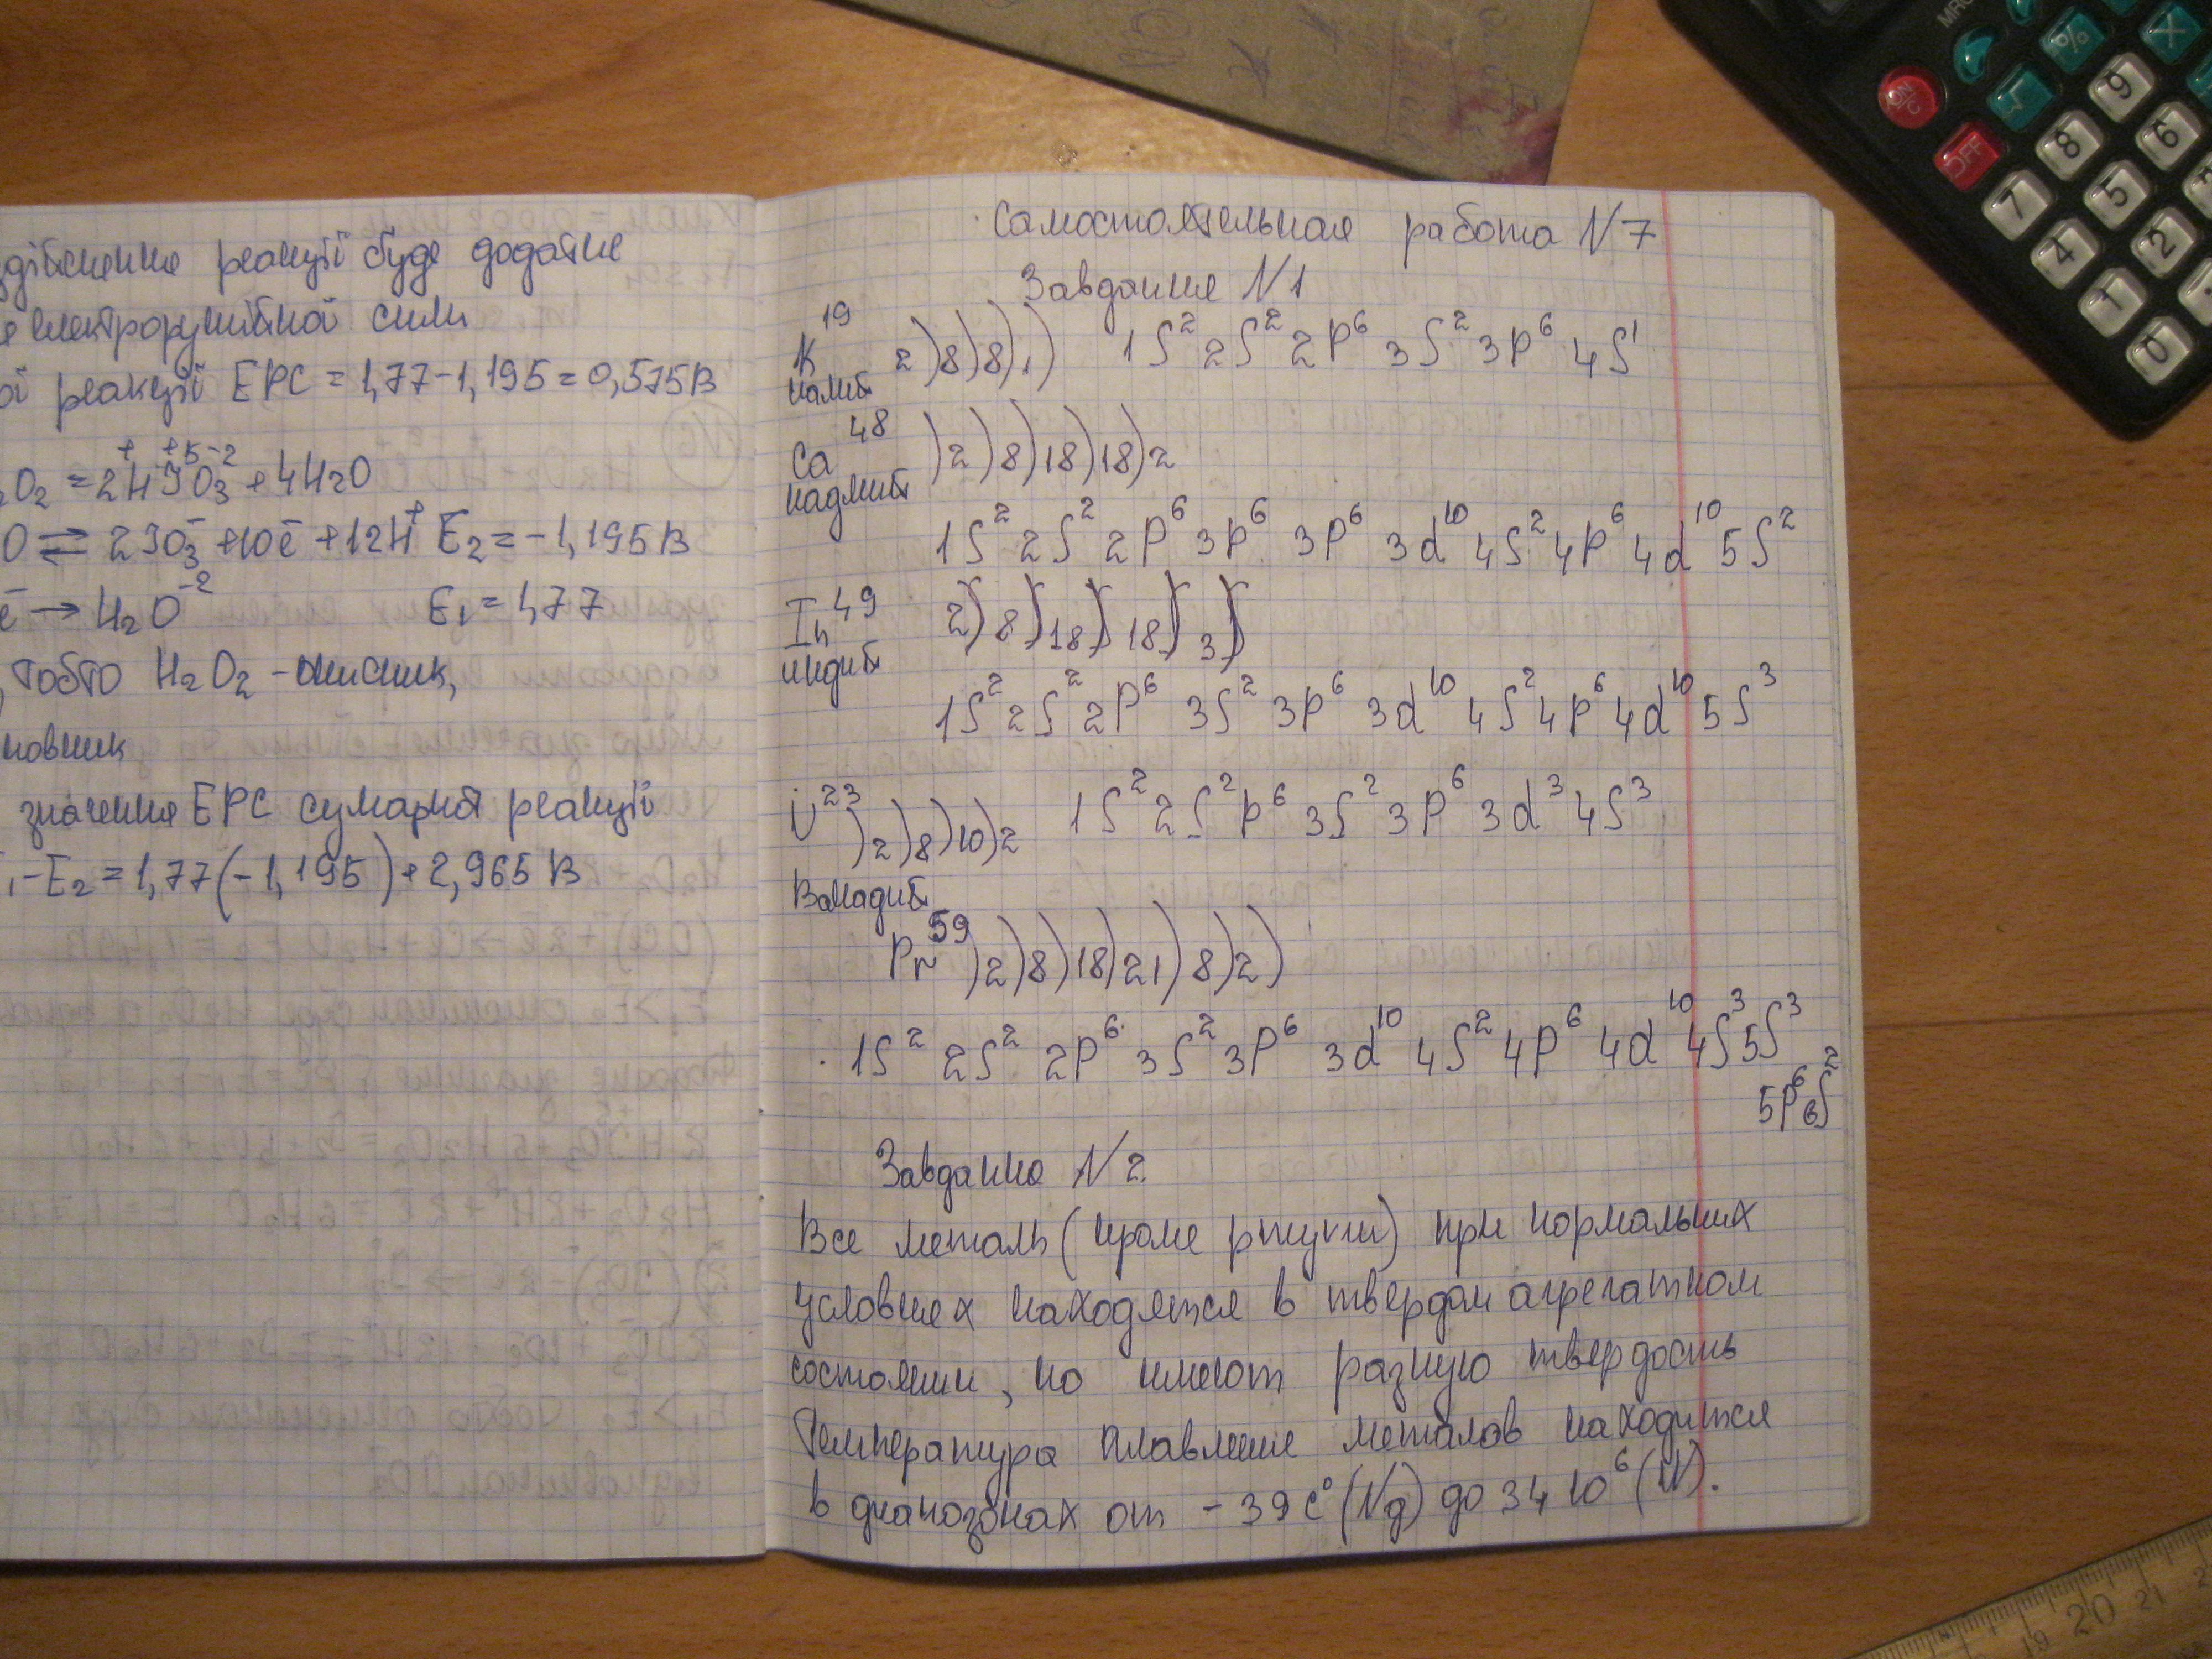 реакції буде додатне
електрорушійної сили
реакції ЕРС = 1,77-1,195 = 0,575В
+ +5 -2
O₂ = 2HJO₃ + 4H₂O
O ⇌ 2JO₃⁻ + 10ē + 12H⁺ E₂ = -1,195В
ē → H₂O⁻² E₁ = 1,77
, тобто H₂O₂ - окисник,
новник
значення ЕРС сумарной реакції
-E₂ = 1,77(-1,195) + 2,965 В
Самостоятельная работа N7
Завдание N1
K¹⁹ 2)8)8)1) 1S² 2S² 2P⁶ 3S² 3P⁶ 4S¹
калий
Ca⁴⁸ )2)8)18)18)2
кадмий
1S² 2S² 2P⁶ 3P⁶ 3P⁶ 3d¹⁰ 4S² 4P⁶ 4d¹⁰ 5S²
In⁴⁹ 2)8)18)18)3)
индий
1S² 2S² 2P⁶ 3S² 3P⁶ 3d¹⁰ 4S² 4P⁶ 4d¹⁰ 5S³
V²³ )2)8)10)2 1S² 2S² P⁶ 3S² 3P⁶ 3d³ 4S³
Ванадий
Pr⁵⁹ )2)8)18)21)8)2)
1S² 2S² 2P⁶ 3S² 3P⁶ 3d¹⁰ 4S² 4P⁶ 4d¹⁰ 4S³ 5S³
5P⁶ 6S²
Завдание N2
Все металы (кроме ртути) при нормальних
условиях находятся в твердом агрегатном
состоянии, но имеют разную твердость
Температура плавление металов находится
в диапозонах от -39 C° (Ng) до 34 10⁶ (W).
ON/C
OFF
MRC
%
√
X
9
8
7
6
5
4
2
1
0
19
20
21